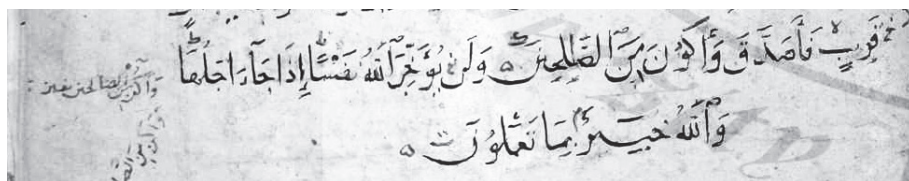 قَرِيبٍ فَأَصَّدَّقَ وَأَكُونَ مِنَ ٱلصَّٰلِحِينَ ۝ وَلَن يُؤَخِّرَ ٱللَّهُ نَفْسًا إِذَا جَآءَ اَجَلُهَا
وَٱللَّهُ خَبِيرٌ بِمَا تَعْمَلُونَ ۝
وأكن من الصالحين بغير